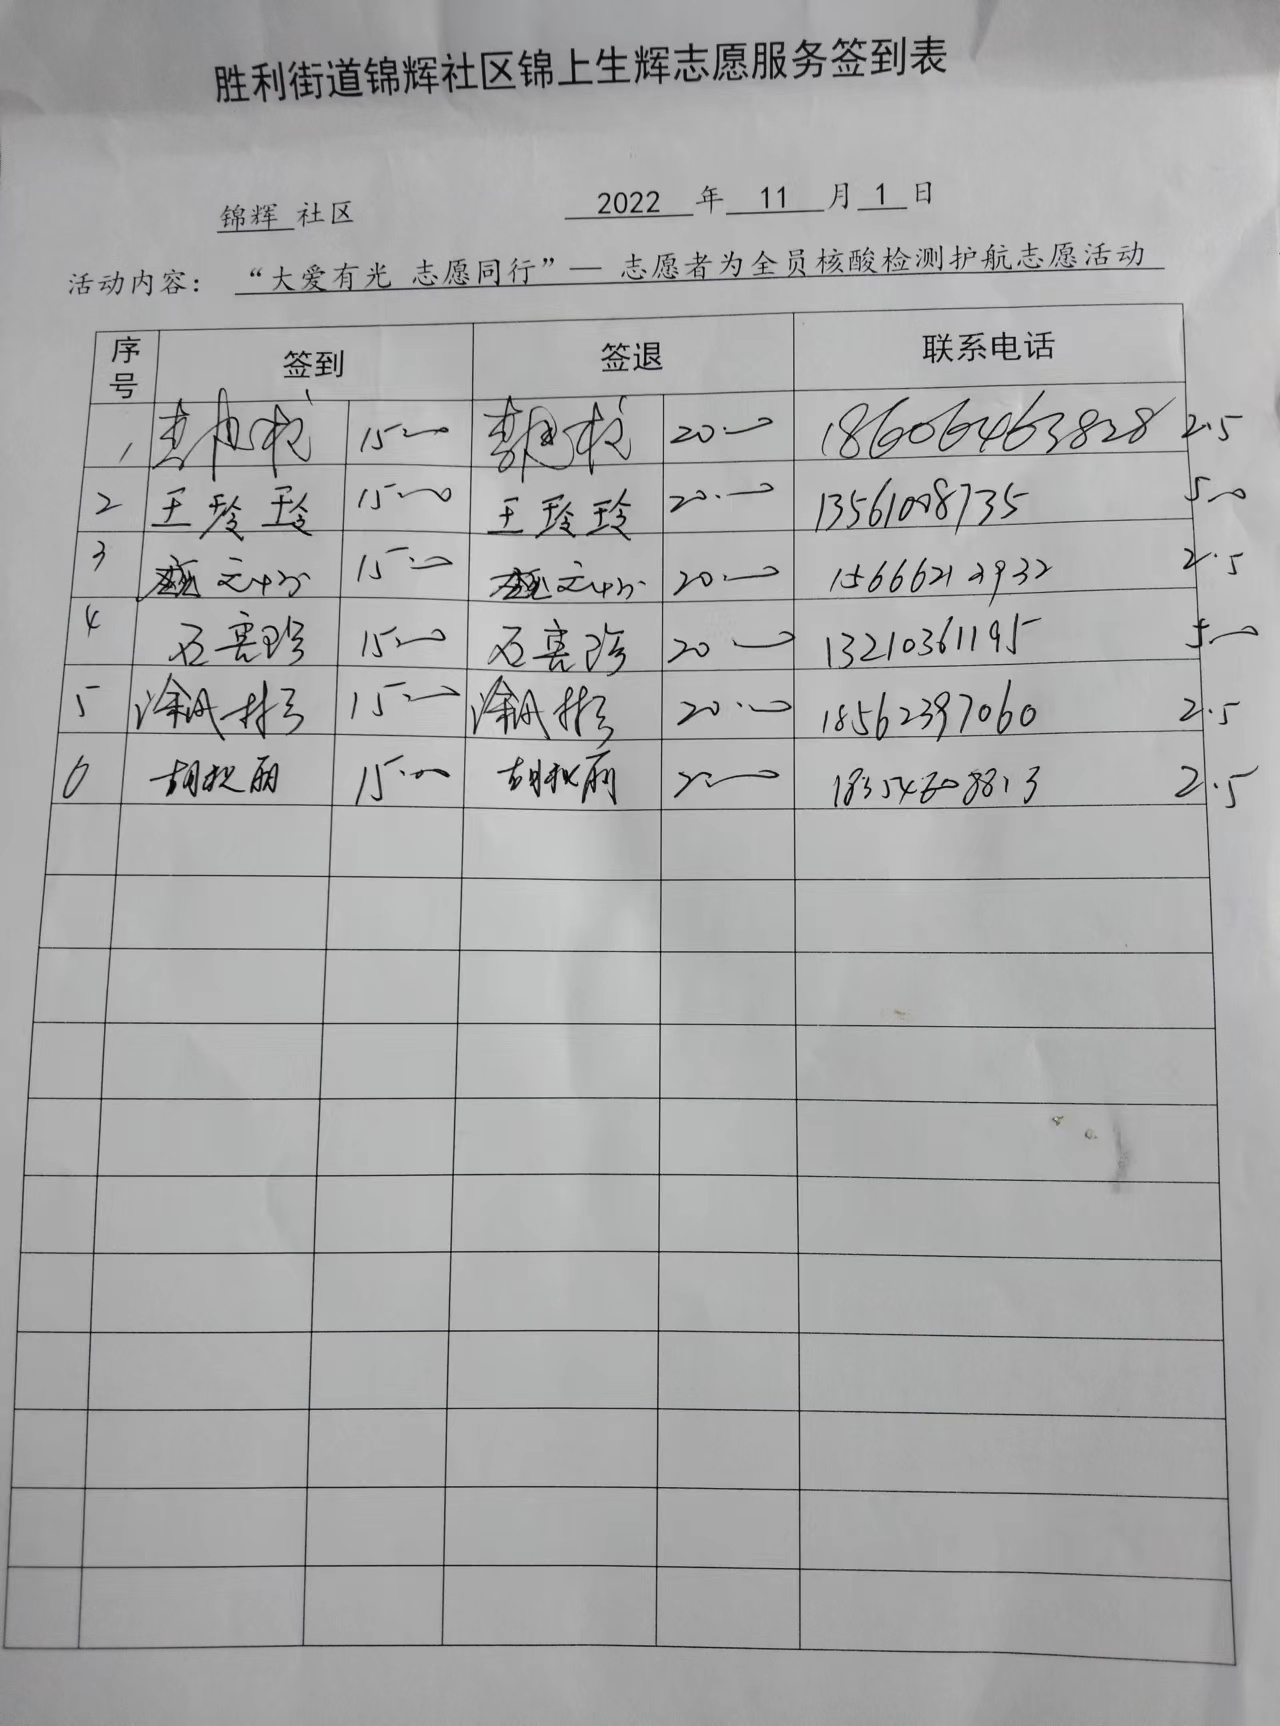 胜利街道锦辉社区锦上生辉志愿服务签到表
锦辉 社区 2022 年 11 月 1 日
活动内容： “大爱有光 志愿同行”— 志愿者为全员核酸检测护航志愿活动
序号 签到 签退 联系电话
1 15:00 20:00 18606463828 2.5
2 王玲玲 15:00 王玲玲 20:00 13561008735 5.0
3 15:00 20:00 15666212932 2.5
4 石喜珍 15:00 石喜珍 20:00 13210361195 5.0
5 15:00 20:00 18562397060 2.5
6 15:00 20:00 18354608813 2.5